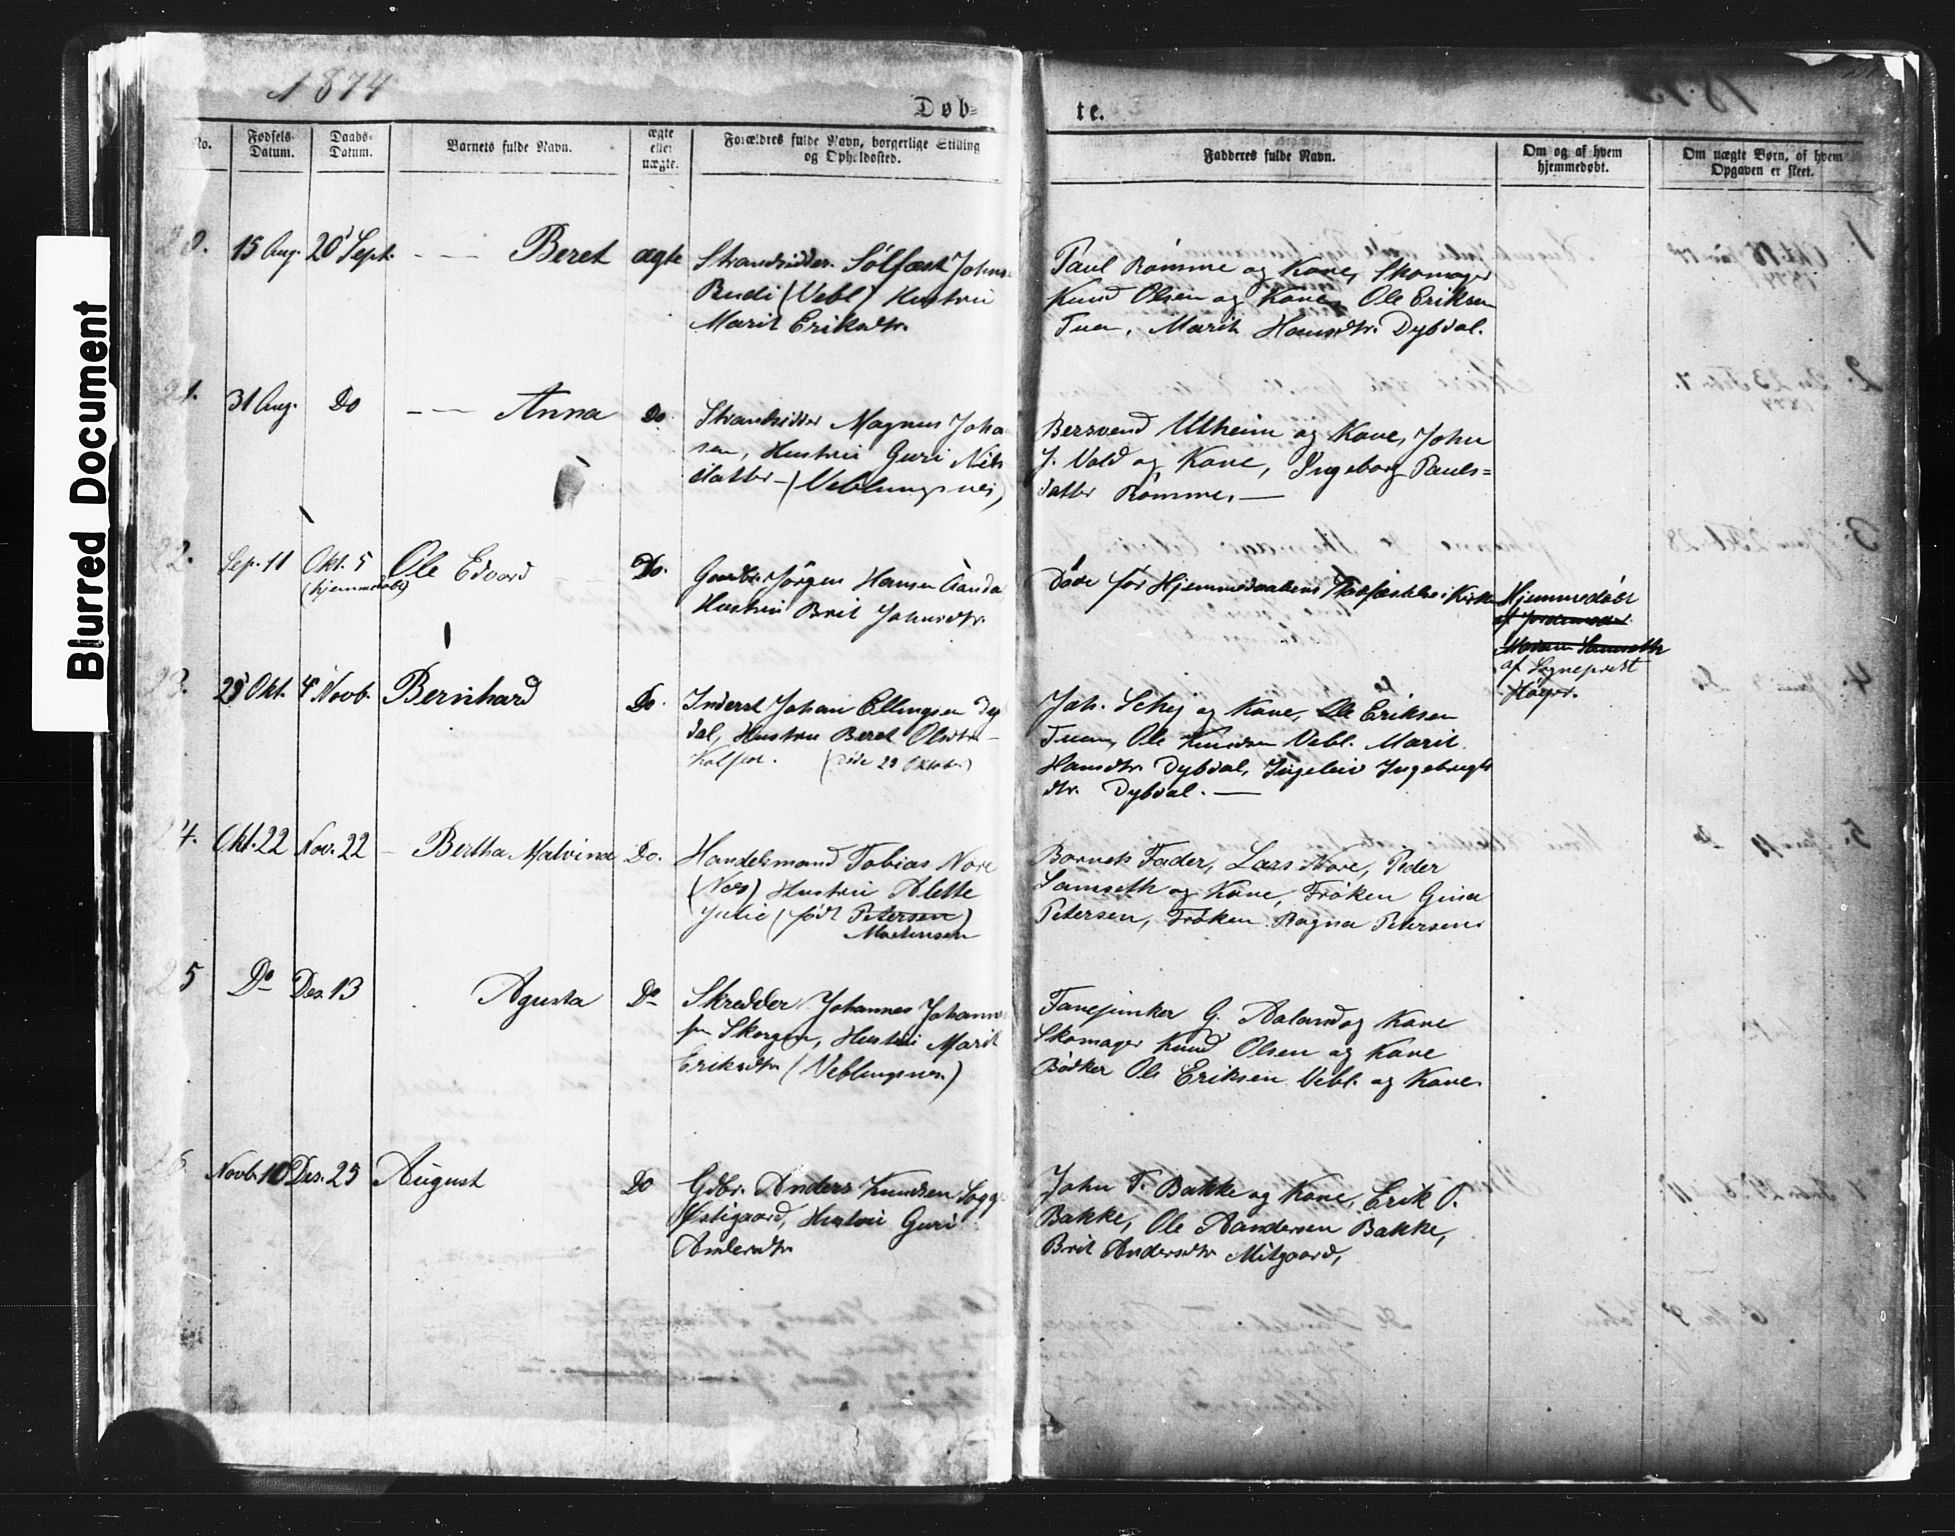 Blurred Document
1874
Døb-
te.
No.
Fødsels-
Datum.
Daabs-
Datum.
Barnets fulde Navn.
ægte
eller
uægte.
Forældres fulde Navn, borgerlige Stilling
og Opholdssted.
Fadderes fulde Navn.
Om og af hvem
hjemmedøbt.
Om uægte Børn, af hvem
Opgaven er skeet.
20. 15 Aug. 20 Sept. Beret ægte Strandsidder Sølfæst Johns.
Budi (Vebl) Hustru
Marit Eriksdtr.
Paul Rømme og Kone, Skomager
Knud Olsen og Kone, Ole Eriksen
Tuen, Marit Hansdtr. Dybdal.
21. 31 Aug. Do Anna Do. Strandsidder Magnus Joha
sen, Hustru Guri Nils
datter (Veblungsnes)
Bersvend Utheim og Kone, John
J. Vold og Kone, Ingeborg Pauls=
datter Rømme.
22. Sep. 11 Okt. 5 Ole Edvard Do. Gaardbr. Jørgen Hansen Aanda
(hjemmedøbt)
Hustru Brit Johnsdtr.
Døde før Hjemmedaabens Stadfæstelse i Kirken
Hjemmedøbt
af Sogneprest
Høyer.
23. 23 Okt. 4 Novb. Bernhard Do. Inderst Johan Ellingsen Dyb
dal, Hustru Beret Olsdtr.
(døde 29 Oktober)
Joh. Schej og Kone, Ole Eriksen
Tuen, Ole Knudsen Vebl. Marit
Hansdtr. Dybdal, Ingeleiv Ingebrigts
dtr. Dybdal.
24. Okt. 22 Nov. 22 Bertha Malvina Do. Handelsmand Tobias Nore
(Næs) Hustru Alette
Julie (født Petersen)
Martinsen
Barnets Fader, Lars Nore, Peder
Samseth og Kone, Frøken Gina
Petersen, Frøken Ragna Petersen.
25 Do Des. 13 Agusta Do Skredder Johannes Johanne
sen Skorgen, Hustru Marit
Eriksdtr (Veblungsnes)
Fanejunker G. Aaland og Kone
Skomager Knud Olsen og Kone
Bødker Ole Eriksen Vebl. og Kone.
26. Novb. 10 Des. 25 August Do Gdbr. Anders Knudsen Sogge
Østigaard, Hustru Guri
Andersdtr
John T. Bakke og Kone, Erik P.
Bakke, Ole Aandersen Bakke,
Brit Andersdtr Mitgaard,